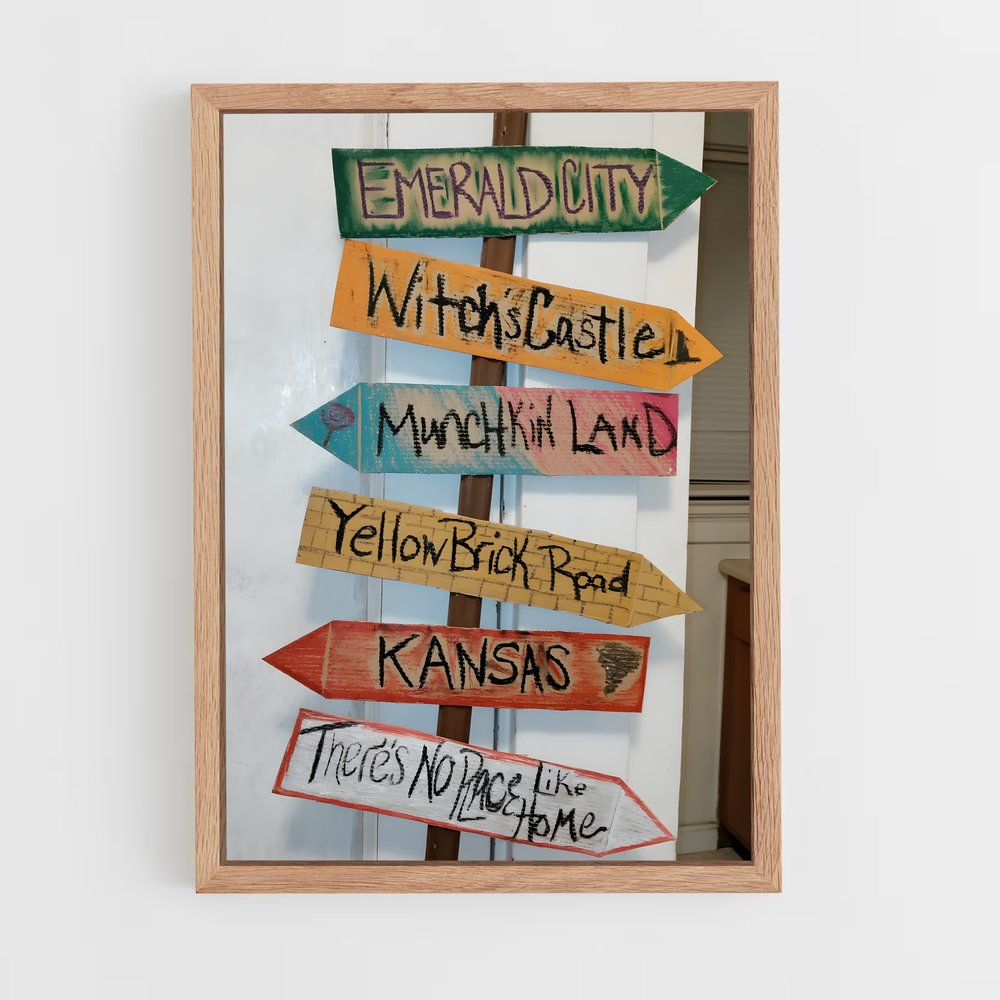 EMERALD CITY
Witch's Castle
MUNCHKIN LAND
Yellow Brick Road
KANSAS
There's No Place Like
Home